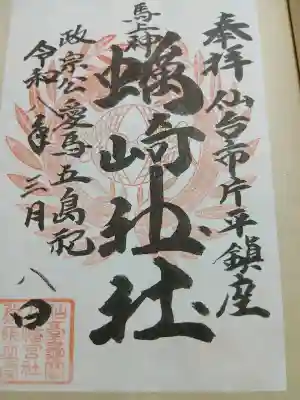 奉拝 仙台市片平鎮座
馬上
蠣崎社
政宗公愛馬五島祀
令和八年三月八日